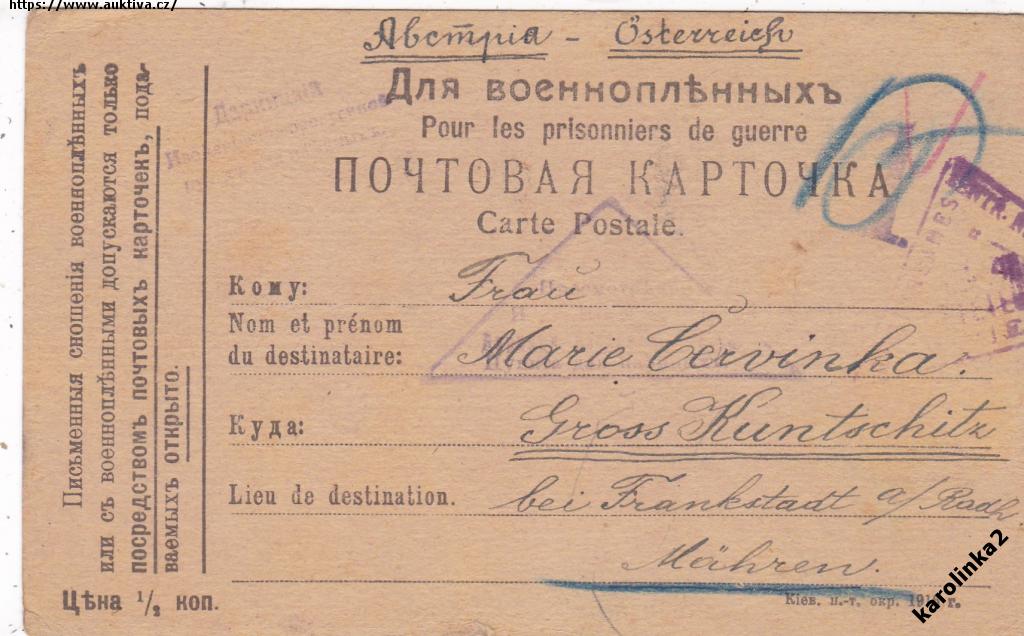 https://www.auktiva.cz/
Австрія - Österreich
Для военноплѣнныхъ
Pour les prisonniers de guerre
ПОЧТОВАЯ КАРТОЧКА
Carte Postale.
Кому: Frau
Nom et prénom
du destinataire: Marie Červinka.
Куда: Gross Kuntschitz
Lieu de destination. bei Frankstadt a/ Radh
Mähren.
Письменныя сношенія военноплѣнныхъ
или съ военноплѣнными допускаются только
посредствомъ почтовыхъ карточекъ, пода-
ваемыхъ открыто.
Цѣна 1/2 коп.
Кіев. н.-т. окр.
karolinka2